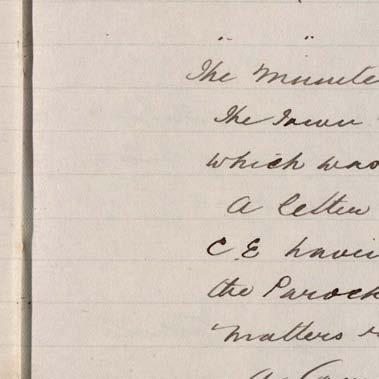 " "
The Minute
The Town
which was
A letter
C.E havin
the Paroch
matters